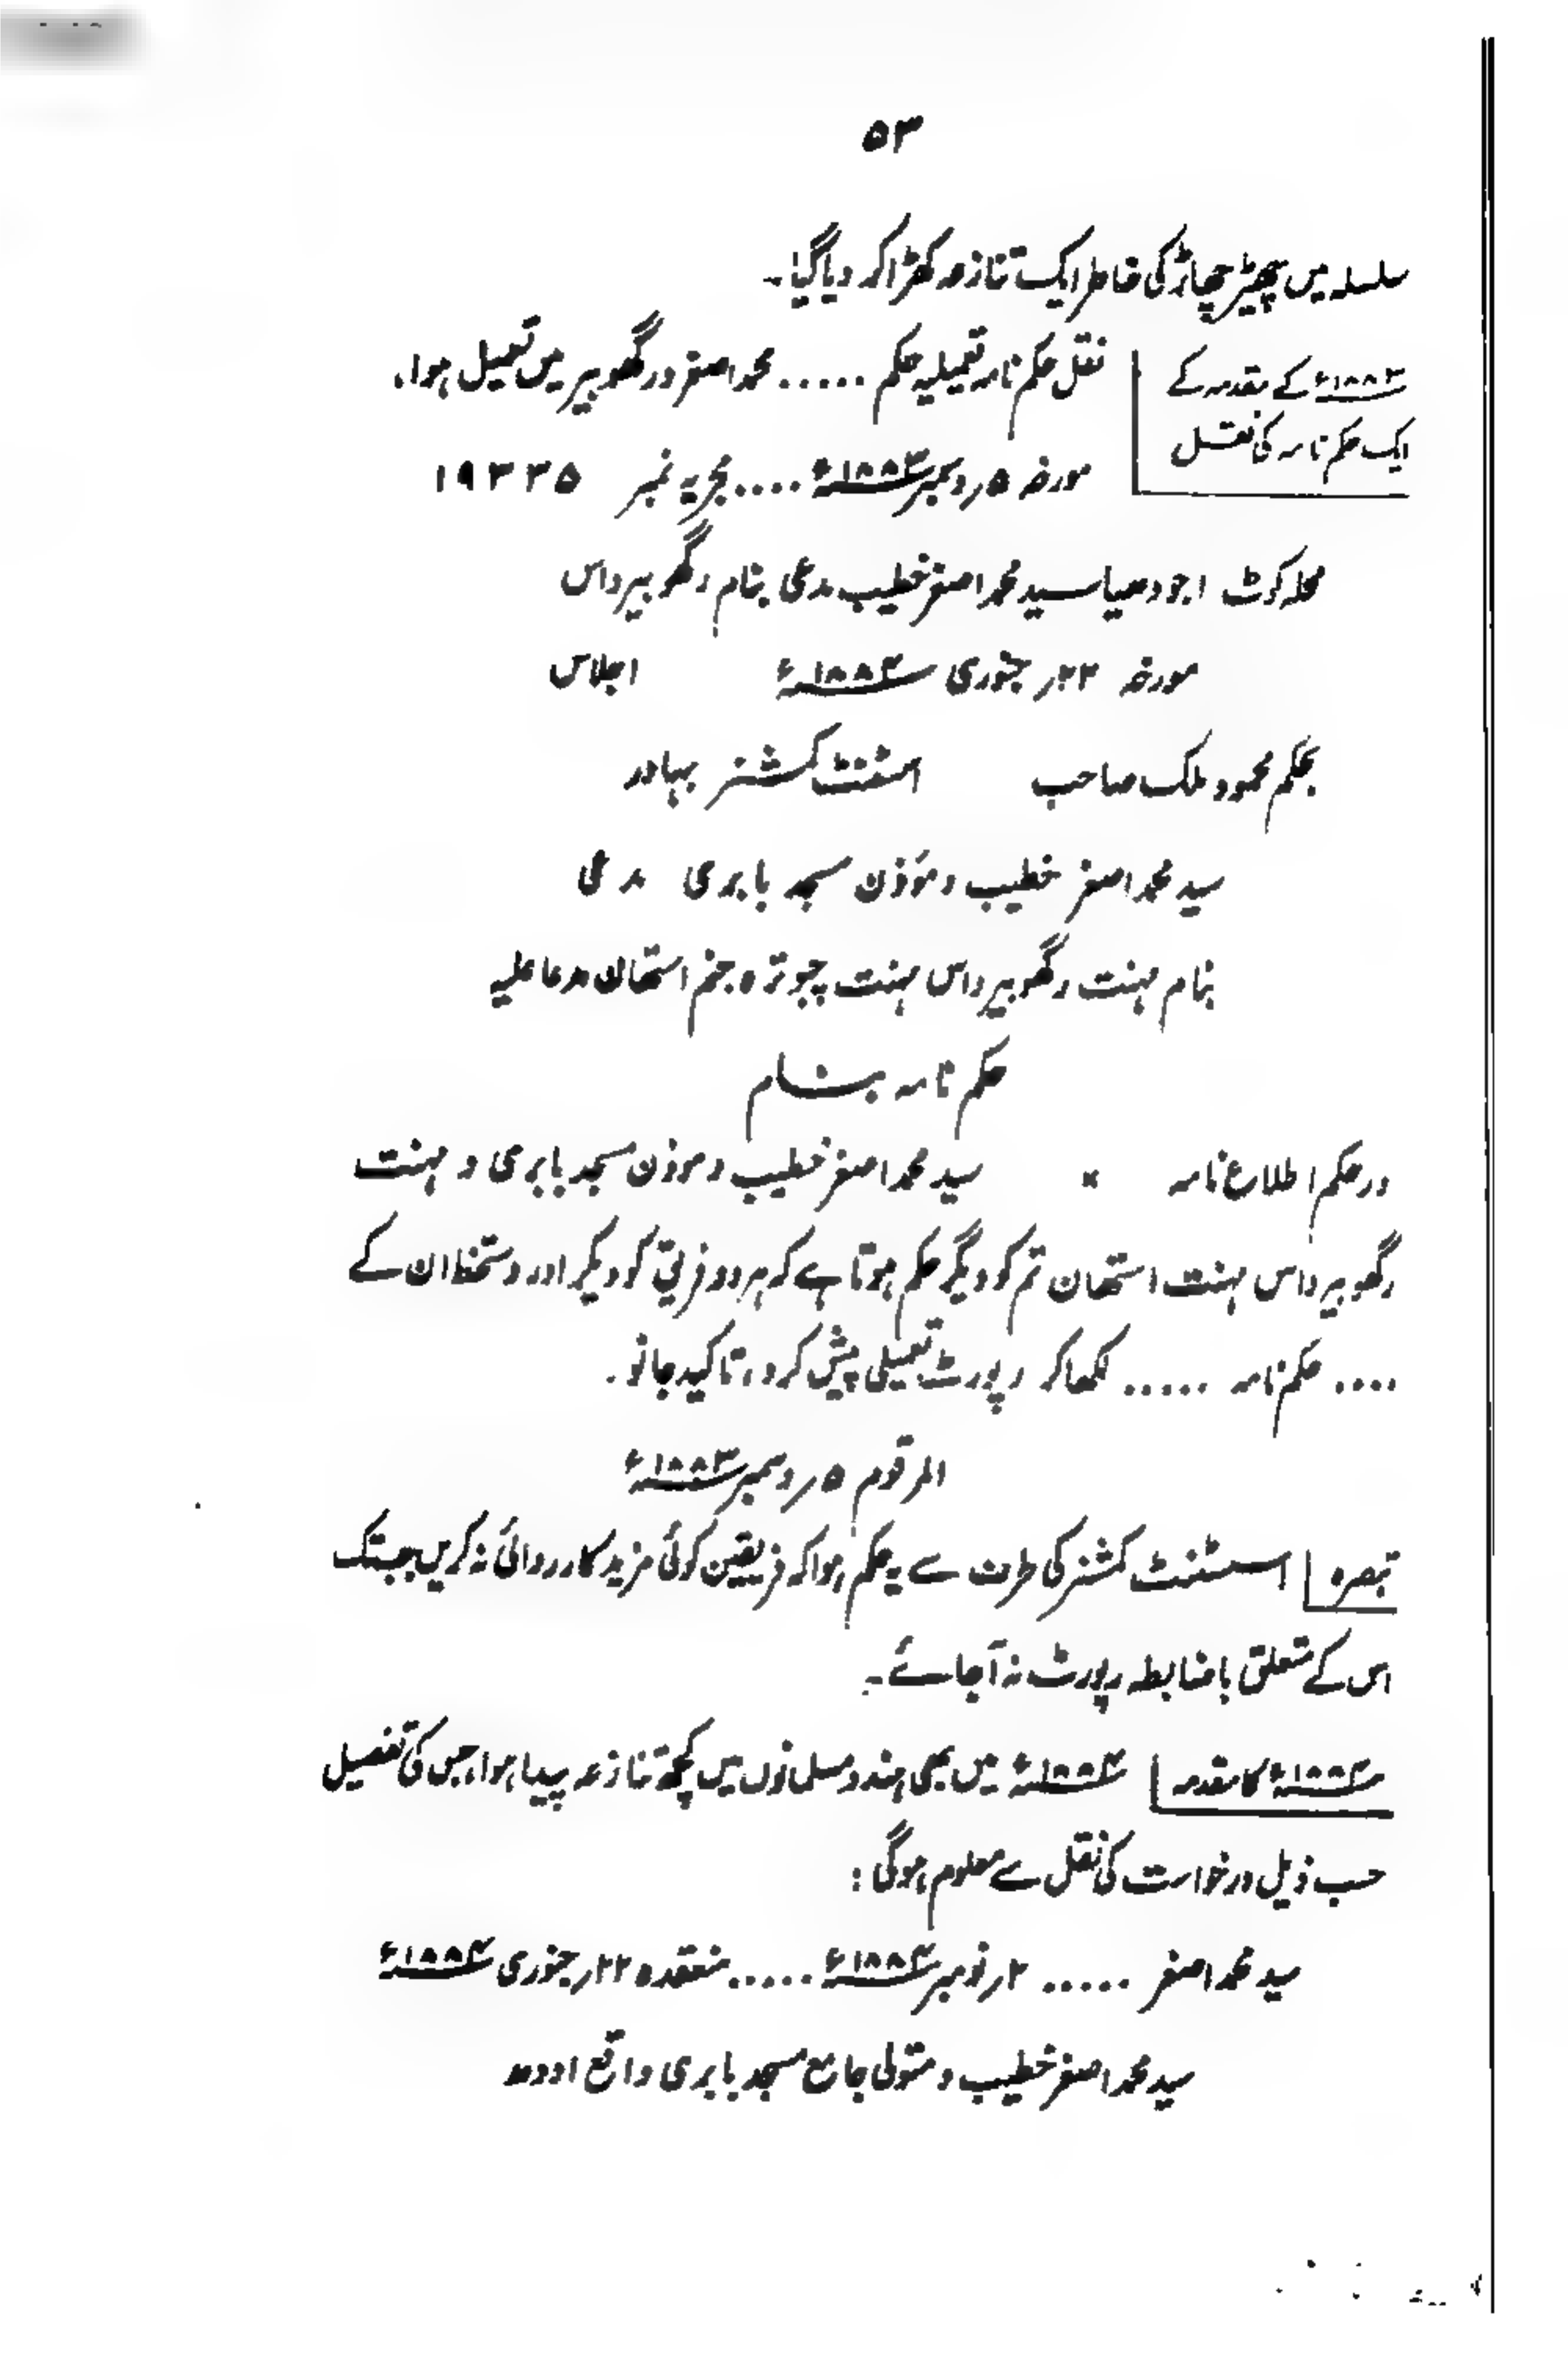 ۵۳
سلسلہ میں چھیڑ چھاڑ کی خاطر ایک تنازعہ کھڑا کر دیا گیا۔
۱۸۸۳ء کے مقدمہ کے
ایک حکم نامہ کی نقل
نقل حکم نامہ تعمیلیہ حکم ..... محمد اصغر و رگھوبیر میں تعمیل ہوا.
مورخہ ۵ر دسمبر ۱۸۸۳ء .... مجریہ نمبر ۱۹۳۳۵
محلہ کوٹ اجودھیا سید محمد اصغر خطیب مدعی بنام رگھوبیر داس
مورخہ ۲۲ر جنوری ۱۸۸۴ء اجلاس
بحکم محمود ملک صاحب اسٹنٹ کمشنر بہادر
سید محمد اصغر خطیب و مؤذن مسجد بابری مدعی
بنام مہنت رگھوبیر داس مہنت چبوترہ جنم استھان مدعا علیہ
حکم نامہ بنام
در حکم اطلاع نامہ × سید محمد اصغر خطیب و موذن مسجد بابری و مہنت
رگھوبیر داس مہنت استھان تم کو دیگر حکم ہوتا ہے کہ ہر دو فریق کو دیکر اور دستخط ان کے
.... حکم نامہ ..... لکھا کر رپورٹ تعمیلی پیش کرو، تاکید جانو.
المرقوم ۵ر دسمبر ۱۸۸۳ء
تبصرہ اسسٹنٹ کمشنر کی طرف سے یہ حکم ہوا کہ فریقین کوئی مزید کارروائی نہ کریں جبتک
اس کے متعلق باضابطہ رپورٹ نہ آجائے۔
۱۸۸۴ء کا مقدمہ ۱۸۸۴ء میں بھی ہندو مسلمانوں میں کچھ تنازعہ پیدا ہوا، جس کی تفصیل
حسب ذیل درخواست کی نقل سے معلوم ہوگی:
سید محمد اصغر ..... ۲ر نومبر ۱۸۸۴ء ..... منعقدہ ۲۲ر جنوری ۱۸۸۴ء
سید محمد اصغر خطیب و متولی جامع مسجد بابری واقع اودھ